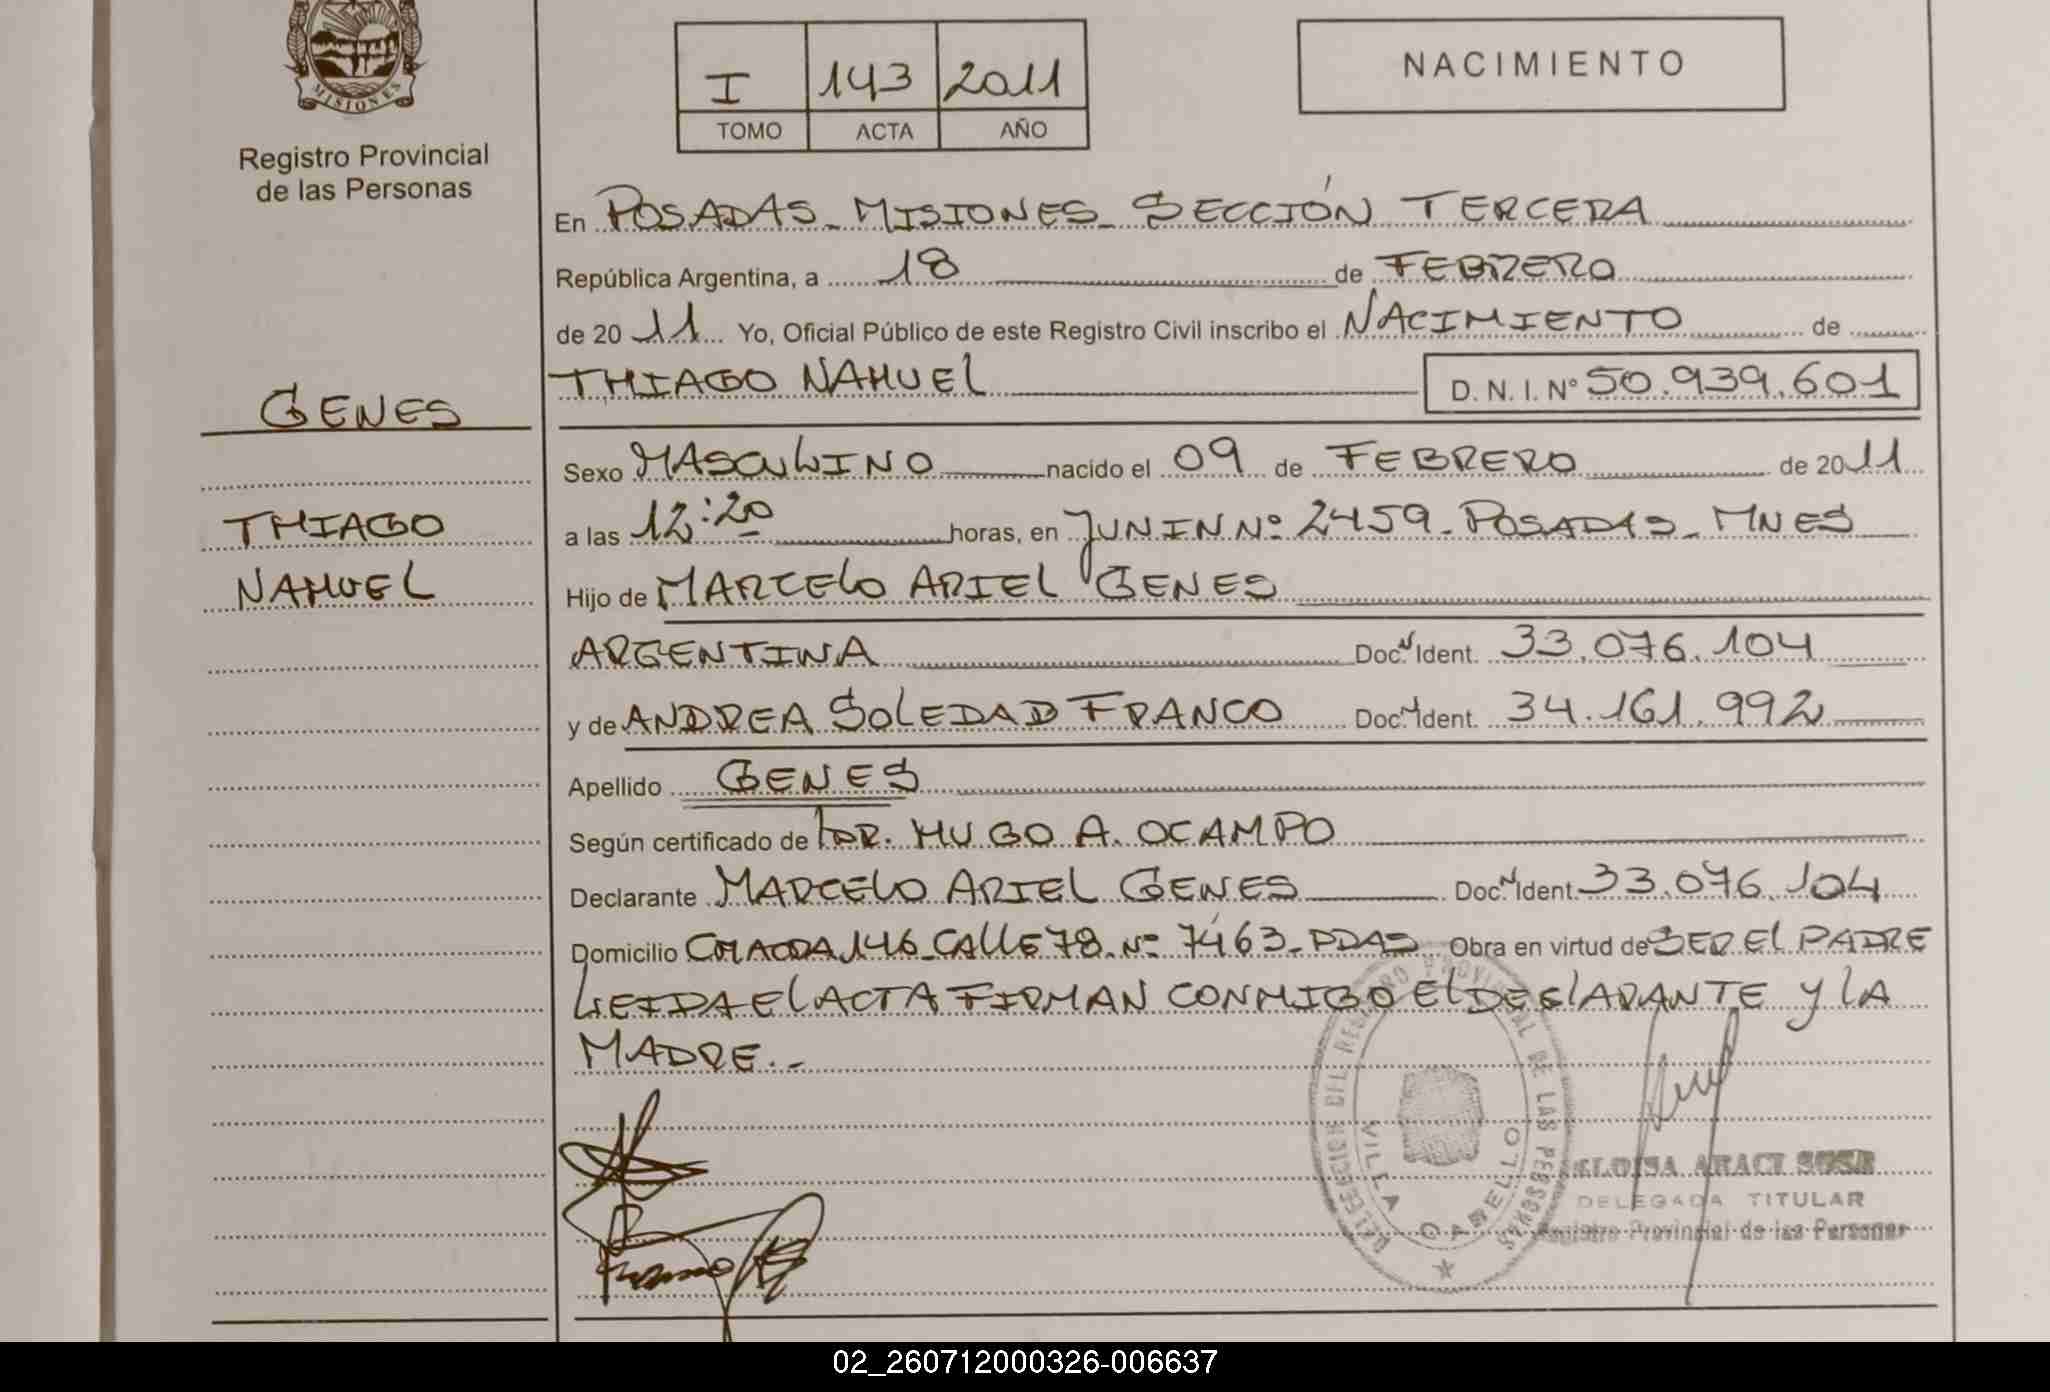 MISIONES
Registro Provincial
de las Personas
I 143 2011
TOMO ACTA AÑO
NACIMIENTO
En POSADAS - MISIONES - SECCIÓN TERCERA
República Argentina, a 18 de FEBRERO
de 20 11 Yo, Oficial Público de este Registro Civil inscribo el NACIMIENTO de
THIAGO NAHUEL D. N. I. Nº 50.939.601
GENES
THIAGO
NAHUEL
Sexo MASCULINO nacido el 09 de FEBRERO de 2011
a las 12:20 horas, en JUNIN Nº 2459 - POSADAS - MNES
Hijo de MARCELO ARIEL GENES
ARGENTINA Doc. N Ident. 33.076.104
y de ANDREA SOLEDAD FRANCO Doc. N Ident. 34.161.992
Apellido GENES
Según certificado de DR. HUGO A. OCAMPO
Declarante MARCELO ARIEL GENES Doc. N Ident. 33.076.104
Domicilio CHACRA 146 - CALLE 78 - Nº 7463 - PDAS Obra en virtud de SER EL PADRE
LEIDA EL ACTA FIRMAN CONMIGO EL DECLARANTE Y LA
MADRE.-
DELEGACION DEL REGISTRO PROVINCIAL DE LAS PERSONAS
VILLA CABELLO
ELOISA ARACI SOSA
DELEGADA TITULAR
Registro Provincial de las Personas
02_260712000326-006637